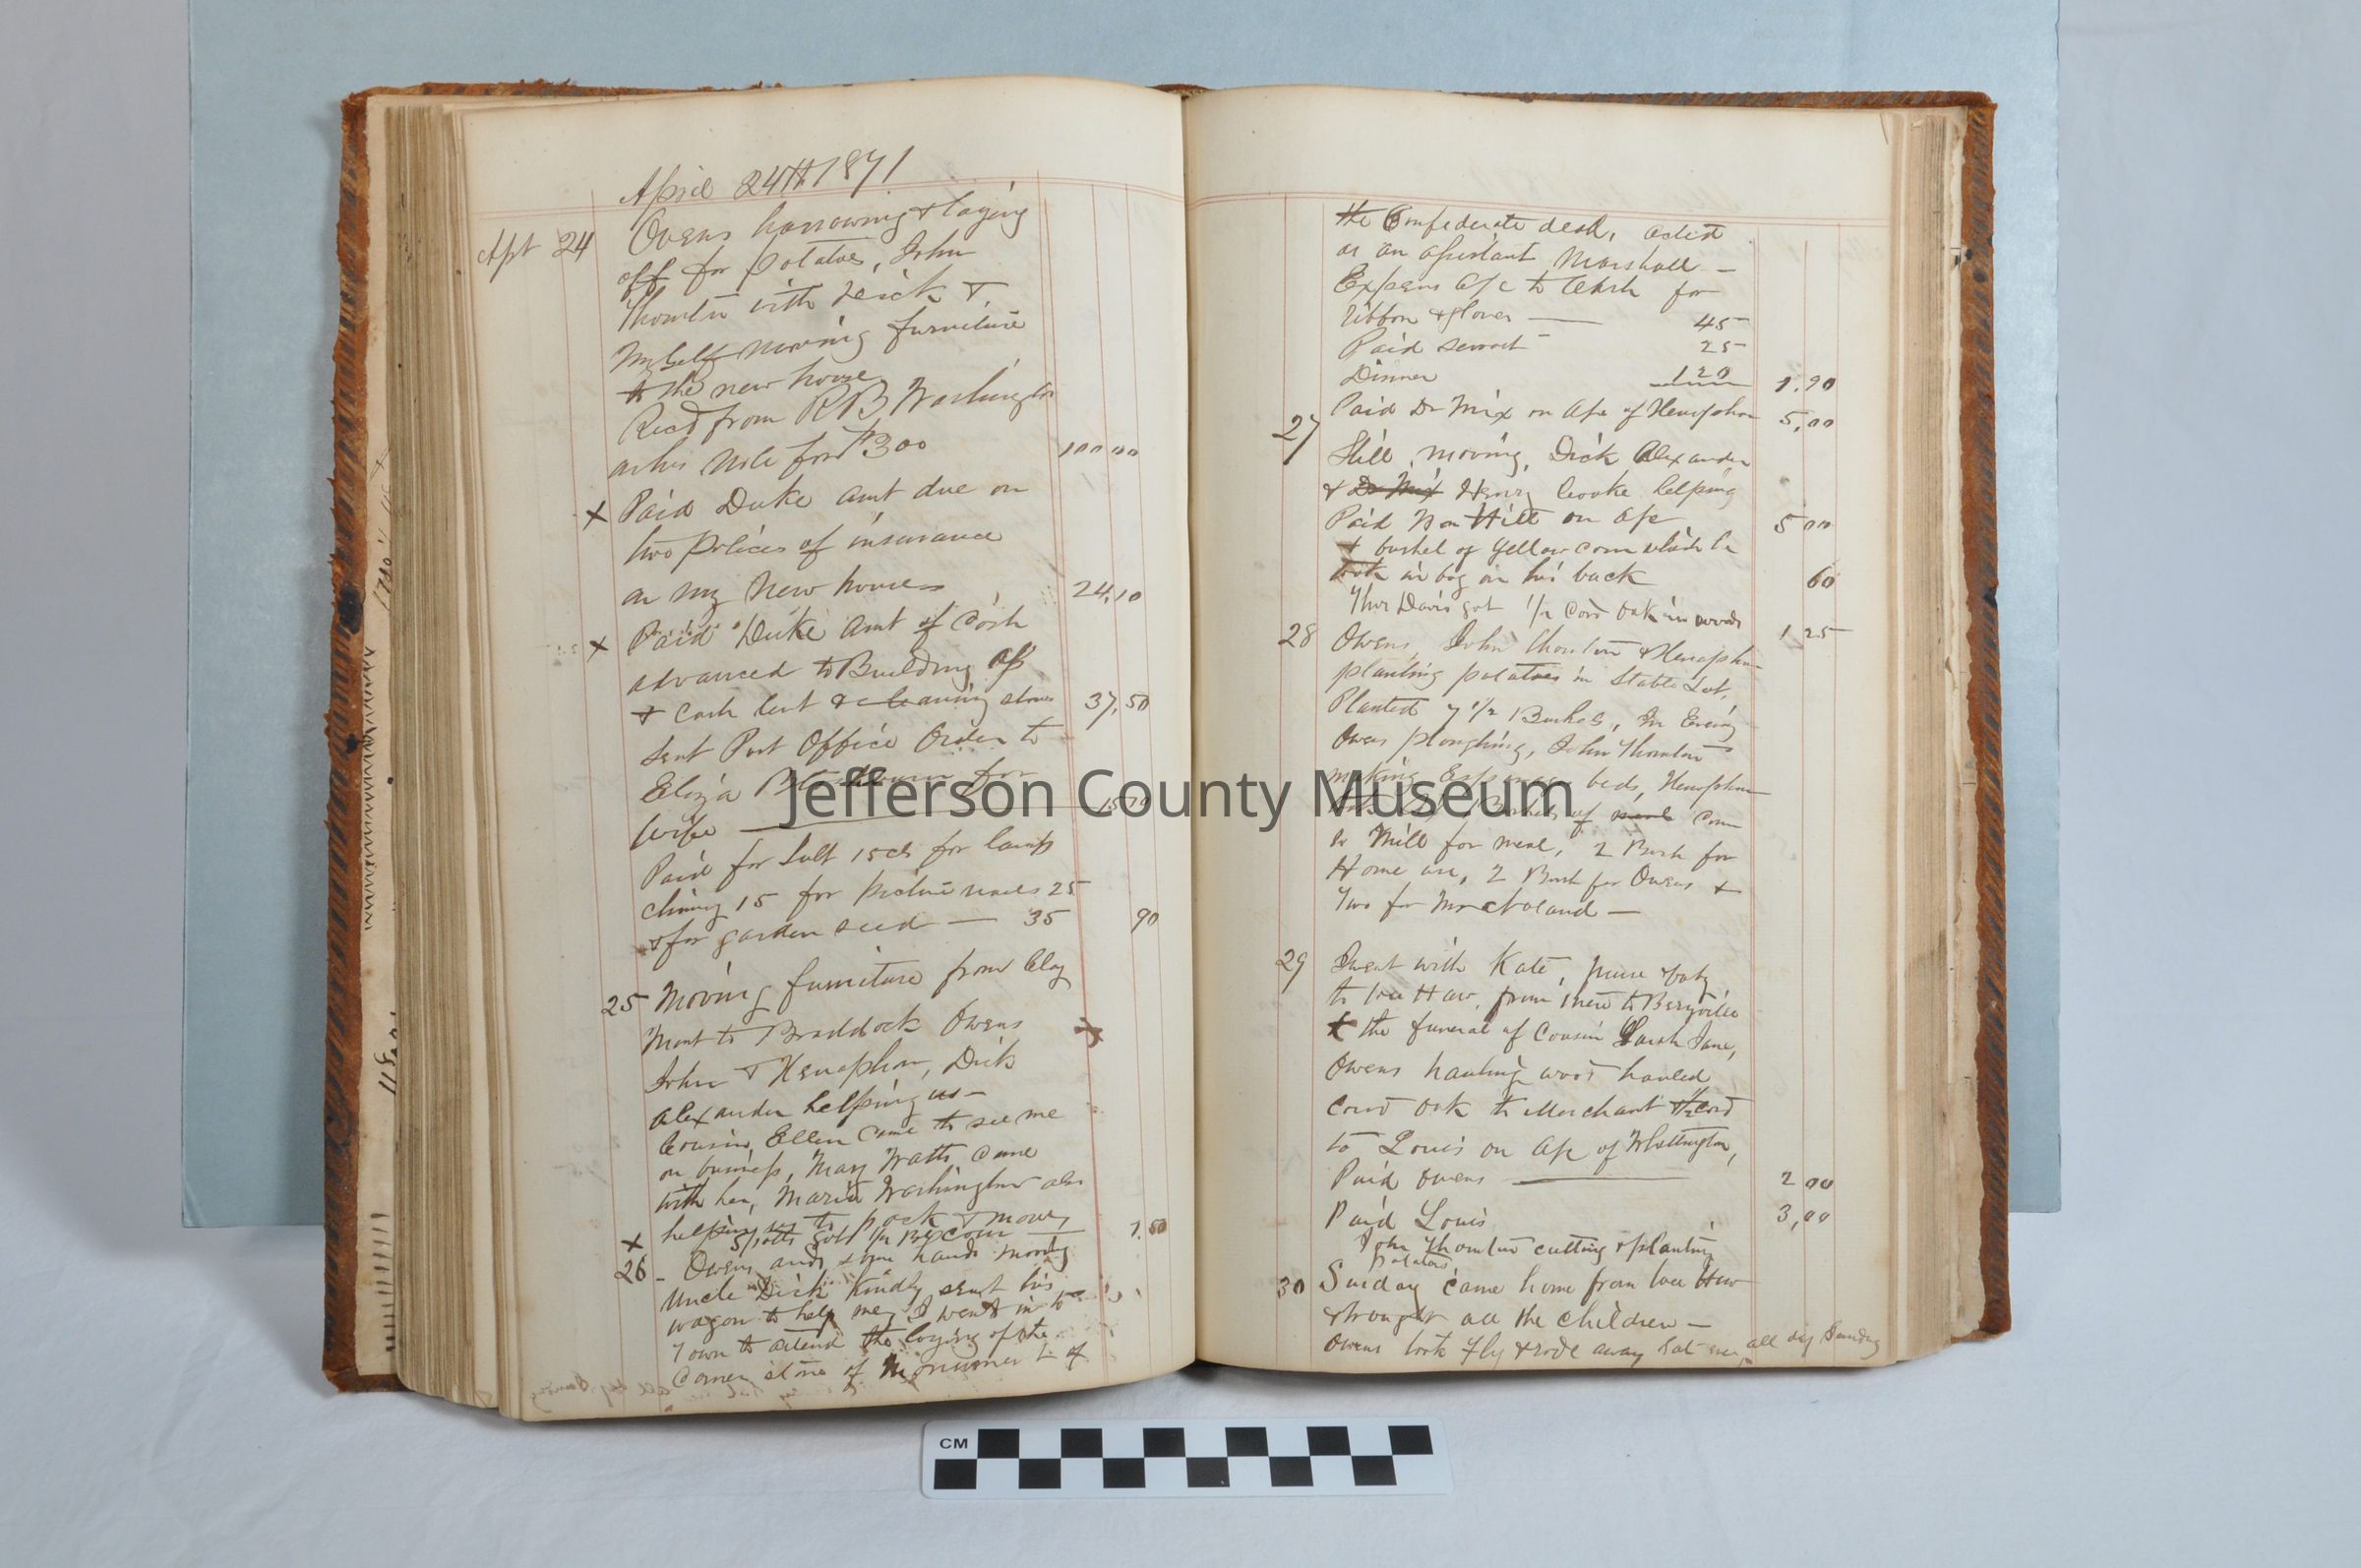 April 24th 1871
Apr 24 Owens harrowing & laying
off for potatoes, John
Thornton with Dick &
myself moving furniture
to the new house
Recd from R B Washington
on his note for $300 100 00
x Paid Duke amt due on
two polices of insurance
on my new house 24,10
x Paid Duke amt of Cash
advanced to Building ass
& cash lent & cleaning stoves 37,50
Sent Post Office Order to
Eliza for
wife
Paid for Salt 15cts for lamp
chimny 15 for picture nails 25
& for garden seed — 35 90
25 Moving furniture from Clay
Mont to Braddock Owens
John & Xenophon, Dick
Alexander helping us —
Cousin Ellen came to see me
on business, Mary Watts came
with her, Maria Washington also
helping us to pack & move
x Spotts got 1/2 Corn 1.50
26 - Owens and same hands moving
Uncle Dick Kindly sent his
wagon to help me, I went in to
Town to attend the laying of the
Corner stone of Monument of
the Confederate dead, acted
as an assistant Marshall —
Expens a/c to Cash for
ribbon & gloves — 45
Paid servant 25
Dinner 120 1.90
Paid Dr Mix on a/c of Xenophon 5,00
27 Still moving, Dick Alexander
& Dr Mix Henry Cooke helping
Paid Hill on a/c 5 00
+ bushel of yellow corn which he
took in bag on his back 60
Thos Davis got 1/2 Cord oak in woods 1 25
28 Owens, John Thornton & Xenophon
planting potatoes in Stable Lot,
Planted 7 1/2 Bushels, In Evening
Owens ploughing, John Thornton
making beds, Xenophon
of corn
to Mill for meal, 2 Bush for
Home use, 2 Bush for Owens &
Two for Mr Noland —
29 Went with Kate, nurse & baby
to Haw, from there to Berryville
to the funeral of Cousin Sarah Jane,
Owens hauling wood hauled
cord oak to Merchant 1/2 cord
to Louis on a/c of Whittington,
Paid Owens — 2 00
Paid Louis 3,00
John Thornton cutting & planting
potatoes
30 Sunday came home from Haw
& brought all the children —
Owens took Fly & rode away Sat all day Sunday
CM
Jefferson County Museum